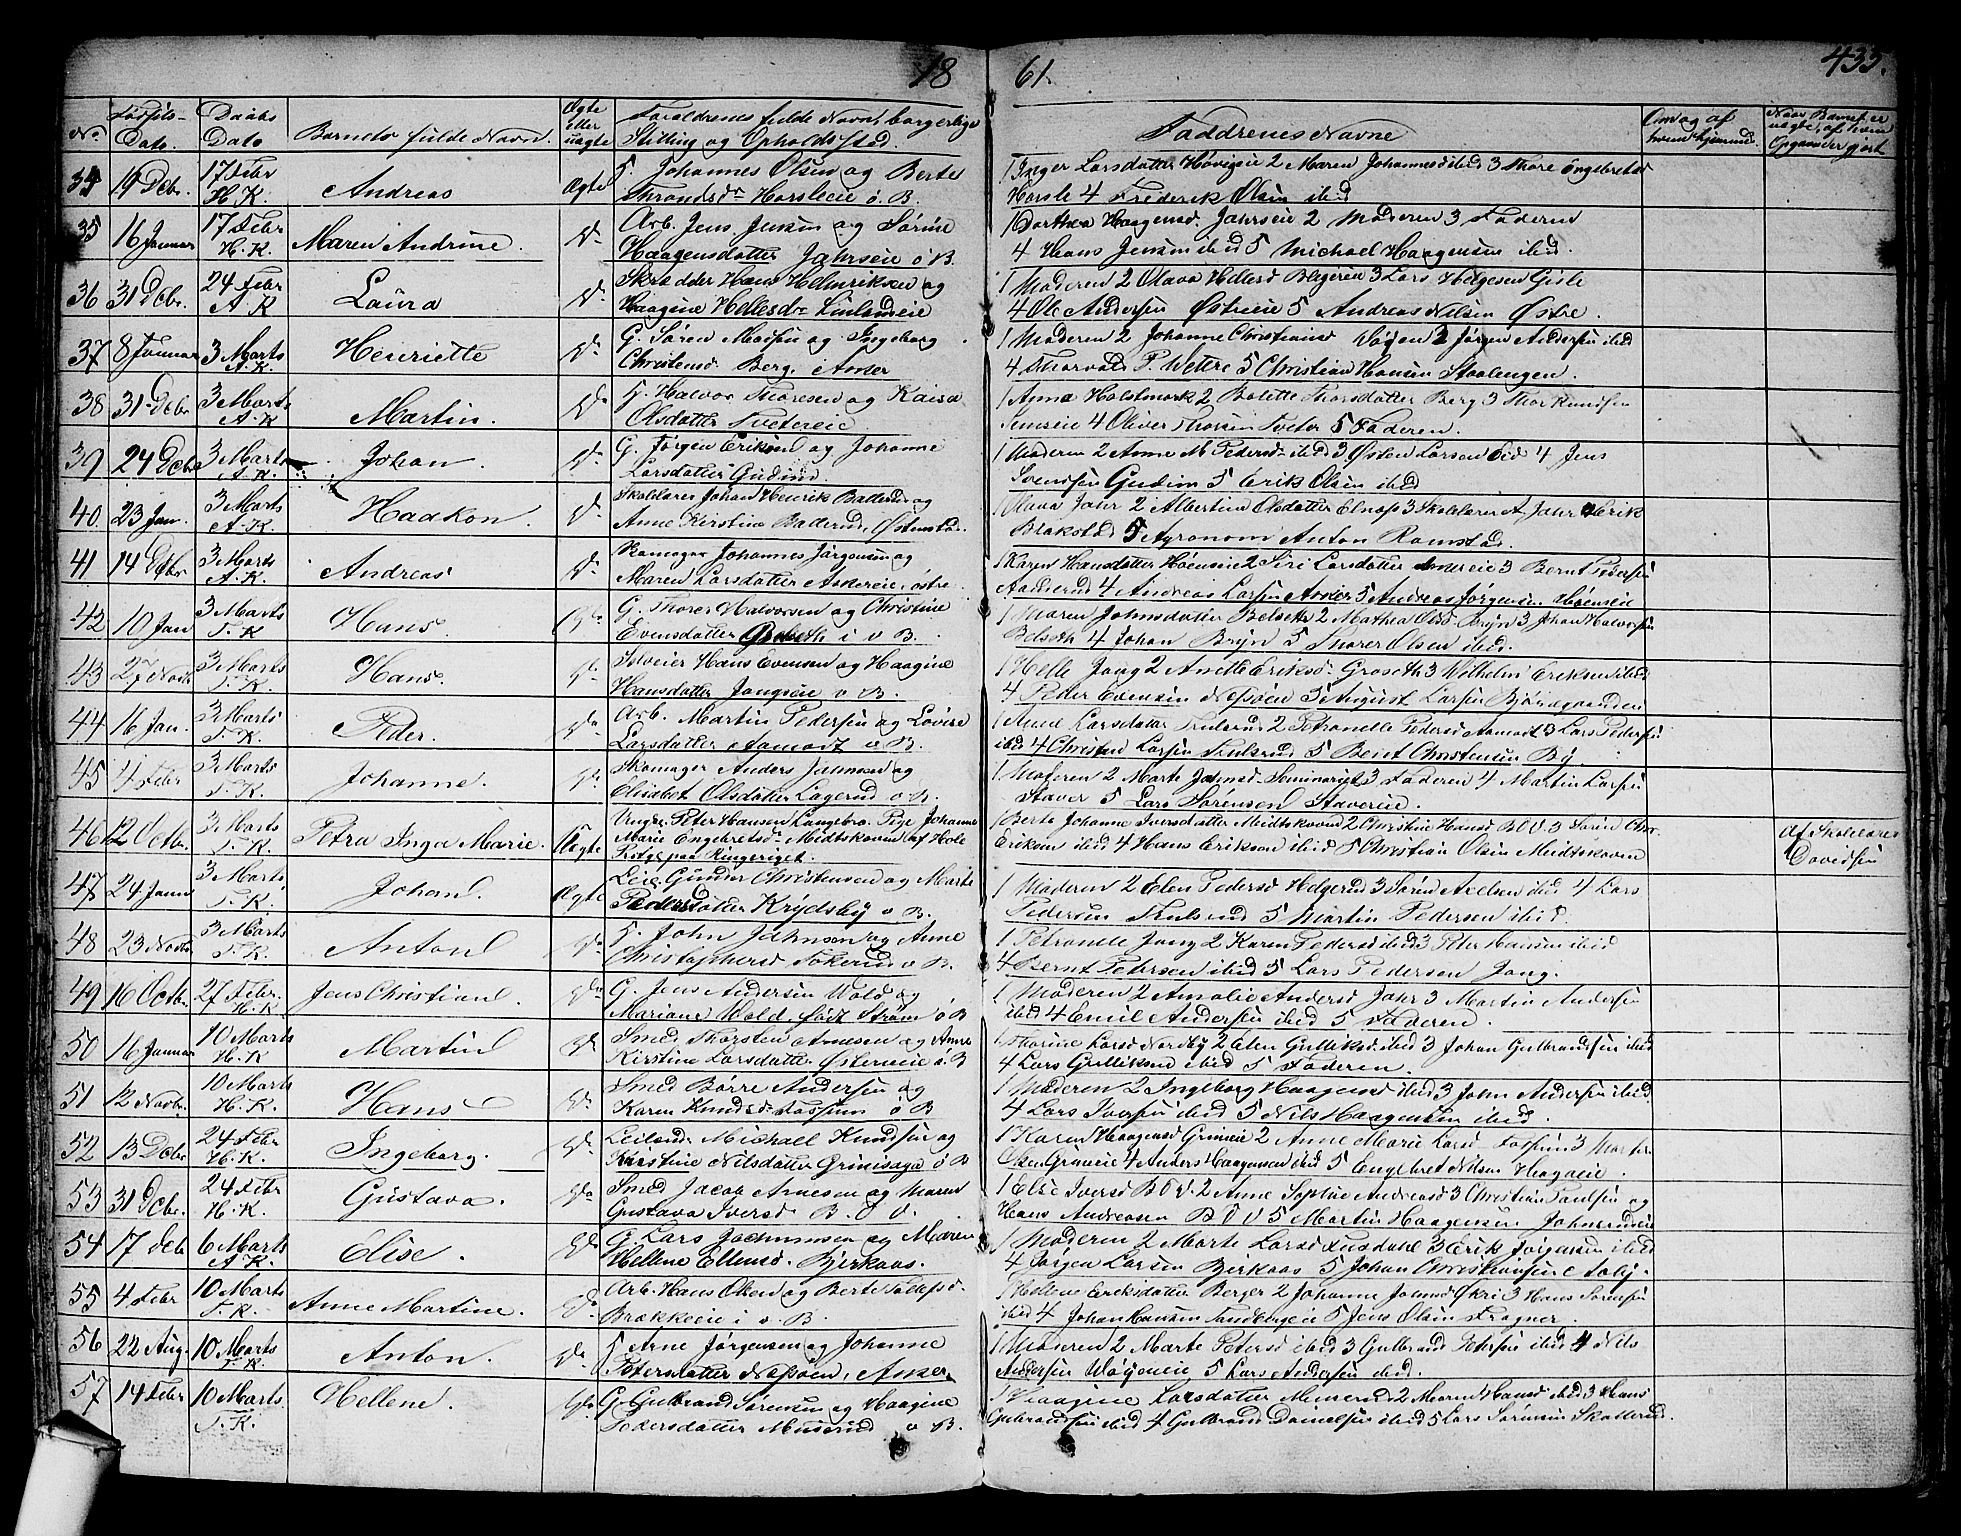 18 61. 433.
No Fødsels-Dato. Daabs Dato Barnets fulde Navn. Ægte eller uægte Forældrenes fulde Navn, borgerlige Stilling og Opholdssted. Faddrenes Navne
34 19 Dcbr. 17 Febr H. K. Andreas Ægte Johannes Olsen og Berte
1 Inger Larsdatter Høvigeie 2 Maren Johannesd ibid 3 Thore Engebretsen
Horsle 4 Frederik Olsen ibid
35 16 Januar 17 Febr H. K. Maren Andrine. Do Arb. Jens Jensen og Sørine
Haagensdatter Jahrseie ø B.
1 Dorthea Haagensd. Jahrseie 2 Moderen 3 Faderen
4 Hans Jensen ibid 5 Michael Haagensen ibid.
36 31 Dcbr. 24 Febr A. K Laura Do Skrædder Hans Helmriksen og
1 Moderen 2 Olava Hellesd Blegeren 3 Lars Helgesen Gisle
4 Ole Andersen Østreeie 5 Andreas Nilsen Østre.
37 8 Januar 3 Marts A. K. Henriette Do G. Søren Madsen og Ingeborg
Christensd. Berg, Asker
1 Moderen 2 Johanne Christiansd Vøyen 3 Jørgen Andersen ibid
4 Thorvald P. Wettre 5 Christian Hansen Staalengen.
38 31 Dcbr 3 Marts A. K Martin. Do H. Halvor Thoresen og Kaisa
Olsdatter Tvetereie
1 Anna Holstmark 2 Bolette Thorsdatter Berg 3 Thor Knudsen
Semseie 4 Oliver Thorsen Tveter 5 Faderen.
39 24 Dcbr 3 Marts A. K. Johan. Do G. Jørgen Eriksen og Johanne
Larsdatter Gudim
1 Moderen 2 Anne M. Pedersd. ibid 3 Østen Larsen Eid 4 Jens
Svendsen Gudim 5 Erik Olsen ibid
40. 23 Jan. 3 Marts A. K. Haakon. Do Skolelærer Johan Henrik Ballerud og
Anne Kirstine Ballerud, Østenstad.
1 Olava Jahr 2 Albertine Olsdatter Elnæs 3 Skolelærer A Jahr 4 Erik
Blakstad 5 Agronom Anton Ramstad.
41 14 Dcbr 3 Marts A. K. Andreas Do Skomager Johannes Jørgensen og
Maren Larsdatter Askereie, østre
1 Karen Hansdatter Høenseie 2 Siri Larsdatter Askereie 3 Bernt Pedersen
Aadderud 4 Andreas Larsen Asker 5 Andreas Jørgensen Høenseie
42 10 Jan 3 Marts T. K Hans. Ægte G. Thorer Halvorsen og Christine
Evensdatter Belseth i v B.
1 Maren Johnsdatter Belseth 2 Mathea Olsd. Bryn 3 Johan Halvorsen
Belseth 4 Johan Bryn 5 Thorer Olsen ibid.
43 27 Novb 3 Marts T. K. Hans. Do Selveier Hans Evensen og Haagine
Hansdatter Jongseie v B.
1 Helle Jong 2 Anette Eriksd. Groseth 3 Wilhelm Eriksen ibid
4 Peder Evensen Nesøen 5 August Larsen Bjørnegaarden
44 16 Jan. 3 Marts T. K. Peder. Do Arb. Martin Pedersen og Lovise
Larsdatter Aamodt v B.
1 Anne Larsdatter Trulsrud 2 Petronelle Pedersd Aamodt 3 Lars Pedersen
ibid 4 Christen Larsen Trulsrud 5 Bernt Christensen By
45 4 Febr 3 Marts T. K. Johanne. Do Skomager Anders Johnsen og
Elisabet Olsdatter Lagerud v B.
1 Moderen 2 Marte Johnsd. Seminariet 3 Faderen 4 Martin Larsen
Staver 5 Lars Sørensen Stavereie.
46 12 Octbr. 3 Marts T. K. Petra Inga Marie. Uægte Ungkr. Peter Hansen Langebro. Pige Johanne
Marie Engebretsd. Meidtskoven af Hole
Præstgj. paa Ringeriget.
1 Berte Johanne Iversdatter Meidtskoven 2 Christine Hansd B. O. V. 3 Søren Chr.
Eriksen ibid 4 Hans Eriksen ibid 5 Christian Olsen Meidtskoven
af Skolelærer Davidsen
47 24 Januar 3 Marts T. K. Johan Ægte Leil. Gunder Christensen og Marte
Pedersdatter Krydsby v B.
1 Moderen 2 Elen Pedersd Helgerud 3 Søren Axelsen ibid 4 Lars
Pedersen Trulsrud 5 Martin Pedersen ibid.
48 23 Novbr 3 Marts T. K. Anton Do H. John Johnsen og Anne
Christophersd Tokerud v B.
1 Petronelle Jong 2 Karen Pedersd ibid 3 Peter Hansen ibid
4 Bernt Petersen ibid 5 Lars Pedersen Jong.
49 16 Octbr. 27 Febr. H. K Jens Christian Do G. Jens Andersen Wold og
Mariane Wold, født Strøm ø B
1 Moderen 2 Amalie Andersd Jahr 3 Martin Andersen
ibid 4 Emil Andersen ibid 5 Faderen.
50 16 Januar 10 Marts H. K Martin Do Smed Thorsten Arnesen og Anne
Kirstine Larsdatter Østerneie ø. B
1 Thorine Larsd Nordby 2 Elen Gulliksd. ibid 3 Johan Gulbrandsen ibid
4 Lars Gulliksen ibid 5 Faderen.
51 12 Novbr. 10 Marts H. K. Hans Do Smed Børre Andersen og
Karen Knudsd. Fossum ø B
1 Moderen 2 Ingeborg Haagensd ibid 3 John Andersen ibid.
4 Lars Iversen ibid 5 Nils Haagensen ibid.
52 13 Dcbr. 24 Febr H. K. Ingeborg. Do Leilend. Michael Knudsen og
Kristine Nilsdatter Grinisaga ø B
1 Karen Haagensd Grinieie 2 Anne Marie Larsd Fossum 3
Grinieie 4 Anders Haagensen ibid 5 Engebret Nilsen Hagaeie.
53 31 Dcbr. 24 Febr H. K. Gustava. Do Smed Jacob Arnesen og Maren
Gustava Iversd. B. O. V.
1 Else Iversd B O V. 2 Anne Sophie Andreasd 3 Christian Paulsen og
Hans Andreasen B O V 5 Martin Haagensen Johnsrudeie
54 17 Dcbr 6 Marts A. K. Elise. Do G. Lars Jochumsen og Maren
Hellene Ellensd. Bjerkaas.
1 Moderen 2 Marte Larsd Fusdahl 3 Erik Jørgensen ibid
4 Jørgen Larsen Bjerkaas 5 Johan Christiansen Aaby.
55 4 Febr 10 Marts T. K. Anne Martine. Do Arb. Hans Olsen og Berte Tollefsd.
Brækkeeie i v. B.
1 Hellene Eriksdatter Berger 2 Johanne Johnsd Økri 3 Hans Sørensen
ibid 4 Johan Hansen Tandbergeie 5 Jens Olsen Frogner.
56 22 Aug. 10 Marts T. K. Anton. Do H. Arne Jørgensen og Johanne
Petersdatter Nesøen, Asker
1 Moderen 2 Marte Petersd ibid 3 Gulbrand Petersen ibid 4 Nils
Andersen Vøyeneie 5 Lars Andersen ibid.
57 14 Febr 10 Marts T. K. Hellene. Do G. Gulbrand Sørensen og Haagine
Pedersdatter Muserud v B.
1 Haagine Larsdatter Muserud 2 Maren Hansd ibid 3 Hans
Gulbrandsen ibid 4 Gulbrand Danielsen ibid 5 Lars Sørensen Skotterud.